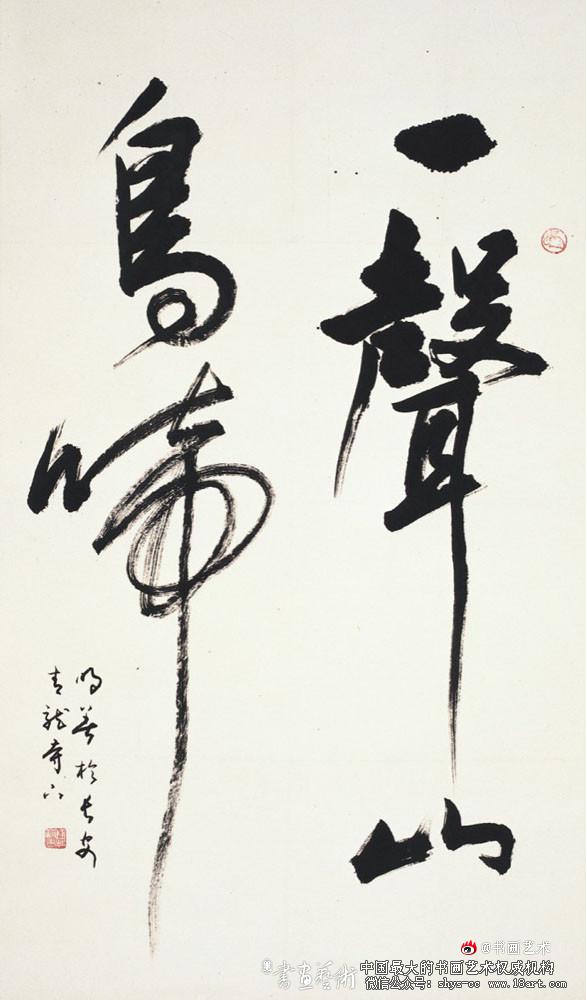 一聲山
鳥啼
明善於長安
青龍寺下
@书画艺术
書画藝術
中国最大的书画艺术权威机构
微信公众号：shys-cc www.18art.com